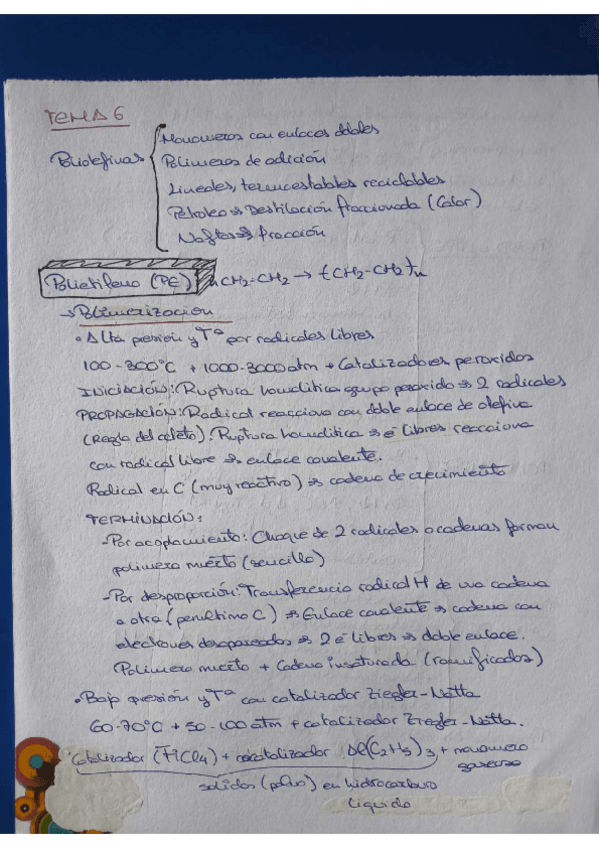 TEMA 6
Poliolefinas
Monomeros con enlaces dobles
Polimeros de adición
Lineales, termoestables reciclables
Petroleo => Destilación fraccionada (Calor)
Naftas => fracción
Polietileno (PE) nCH2-CH2 → {CH2-CH2}n
→ Polimerización
• Alta presión y Tª por radicales libres
100-300°C + 1000-3000 atm + Catalizadores, peroxidos
INICIACIÓN: Ruptura homolitica grupo peroxido => 2 radicales
PROPAGACIÓN: Radical reacciona con doble enlace de olefina
(Regla del octeto). Ruptura homolitica => e⁻ libres reacciona
con radical libre => enlace covalente.
Radical en C (muy reactivo) => cadena de crecimiento
TERMINACIÓN:
- Por acoplamiento: Choque de 2 radicales o cadenas forman
polimero muerto (sencillo)
- Por desproporción: Transferencia radical H de una cadena
a otra (penultimo C) => Enlace covalente => cadena con
electrones desapareados => 2 e⁻ libres => doble enlace.
Polimero muerto + Cadena insaturada (ramificados)
• Baja presión y Tª con catalizador Ziegler-Natta
60-70°C + 50-100 atm + catalizador Ziegler-Natta.
Catalizador (TiCl4) + cocatalizador Al(C2H5)3 + monomero
gaseoso
solidos (polvo) en hidrocarburo
liquido